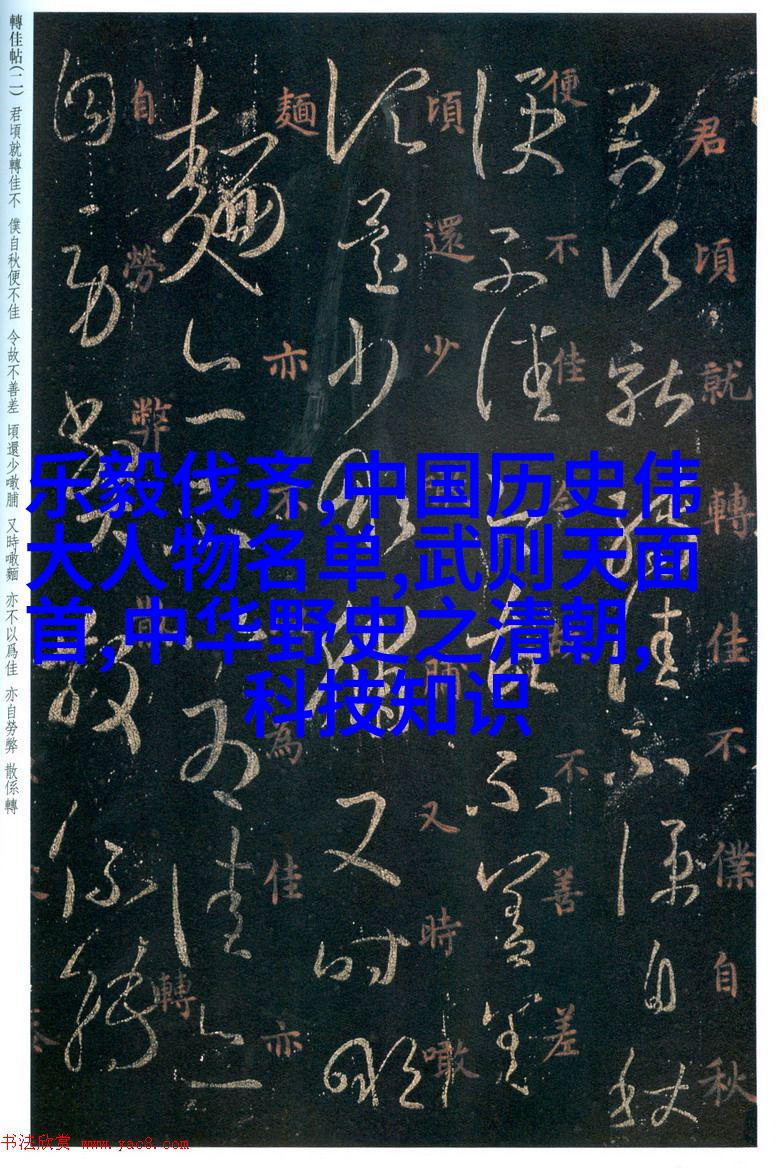 轉佳帖(二) 君頃就轉佳不 僕自秋便不佳 令故不善差 頃還少噉脯 又時噉麵 亦不以爲佳 亦自勞弊 散係轉
乐毅伐齐,中国历史伟
大人物名单,武则天面
首,中华野史之清朝,
科技知识
君頃就轉佳不僕自秋
便不佳令不善差
頃還少脯又時噉
麵亦不為佳亦
自勞弊散轉
书法欣赏 www.yac8.com